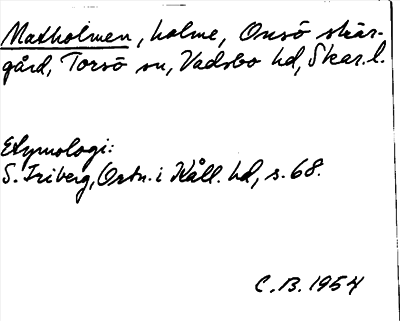 Matholmen, holme, Onsö skär-
gård, Torsö sn, Vadsbo hd, Skar. l.
Etymologi:
S. Friberg, Ortn. i Kåll. hd, s. 68.
C. B. 1954